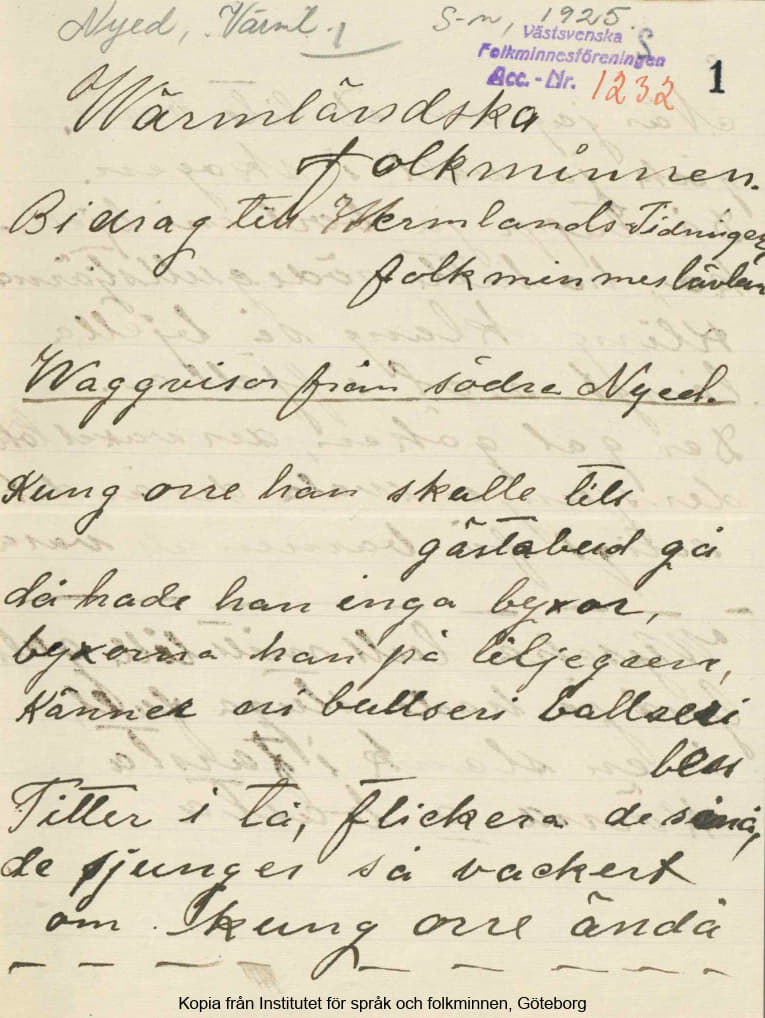 Nyed, Värml.
S-n, 1925.
Västsvenska
Folkminnesföreningen
Acc. - Nr. 1232
1
Wärmländska
folkminnen.
Bidrag till Wermlands Tidningen
folkminnestävlan
Waggvisor från södra Nyed.
Kung orre han skulle till
gästabud gå
då hade han inga byxor,
byxorna han på liljegren,
Känner ni bullseri ballseri
bess
Titter i tå, flickera de små,
de sjunger så vackert
om kung orre ändå
Kopia från Institutet för språk och folkminnen, Göteborg